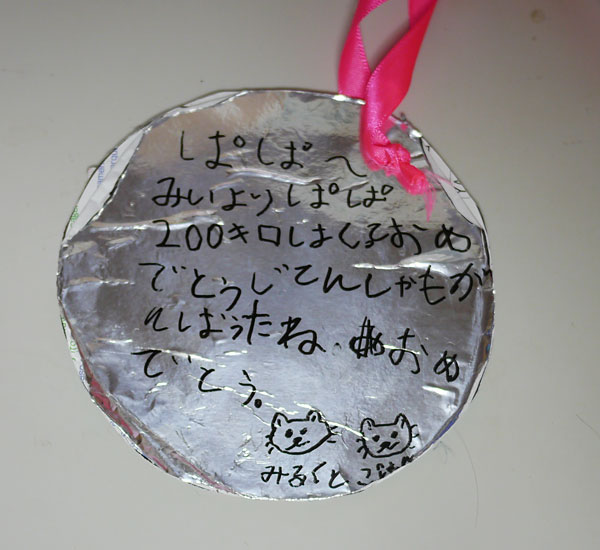 ぱぱへ
みいよりぱぱ
200キロはしるおめ
でとうじてんしゃもが
んばったね.おめ
でとう。
みるくと